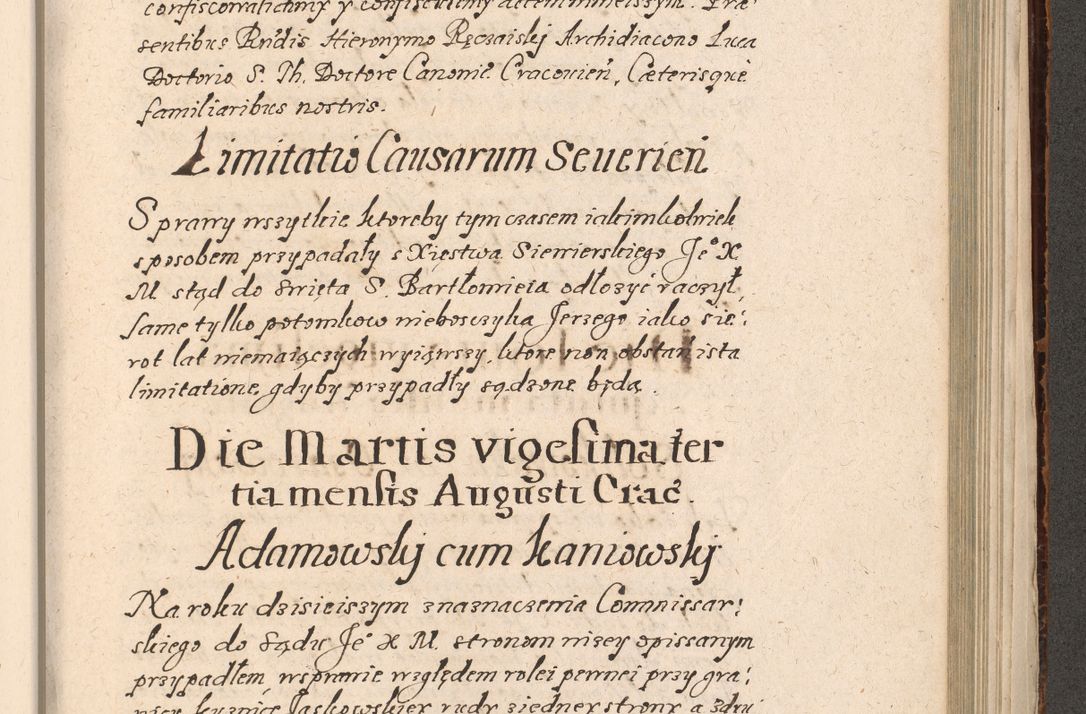 confiscowalichmy y confiscuiemy dctem ninieiszym. Præ
sentibus Rndis Hieronymo Ręczaiskj Archidiacono Luca
Doctorio S. Th. Doctore Canonic̃. Cracouień, Cæterisque
familiaribus nostris.
Limitatio Causarum Seuerień
Sprawy wszytkie ktoreby tym czasem iakimkolwiek
sposobem przypadały s Xięstwa Siewierskiego Je° X
M. stąd do święta S. Bartłomieia odłożyć raczył,
same tylko potomkow nieboszczyka Jerzego iako sie:
rot lat niemaiączych wyiąwszy, ktore non obstań ista
limitatione, gdyby przypadły sądzone będą.
Die Martis vigesima ter
tia mensis Augusti Crac̃.
Adamowskj cum Kaniowskj
Na roku dzisieiszym z naznaczenia Commissar:
skiego do Sądu Je° X M. stronom niżey opissanym
przypadłem, wsprawie względem rolei pewnei przy gra:
nicy kuznice Jaskowskiey rudy ziedney strony a zdru